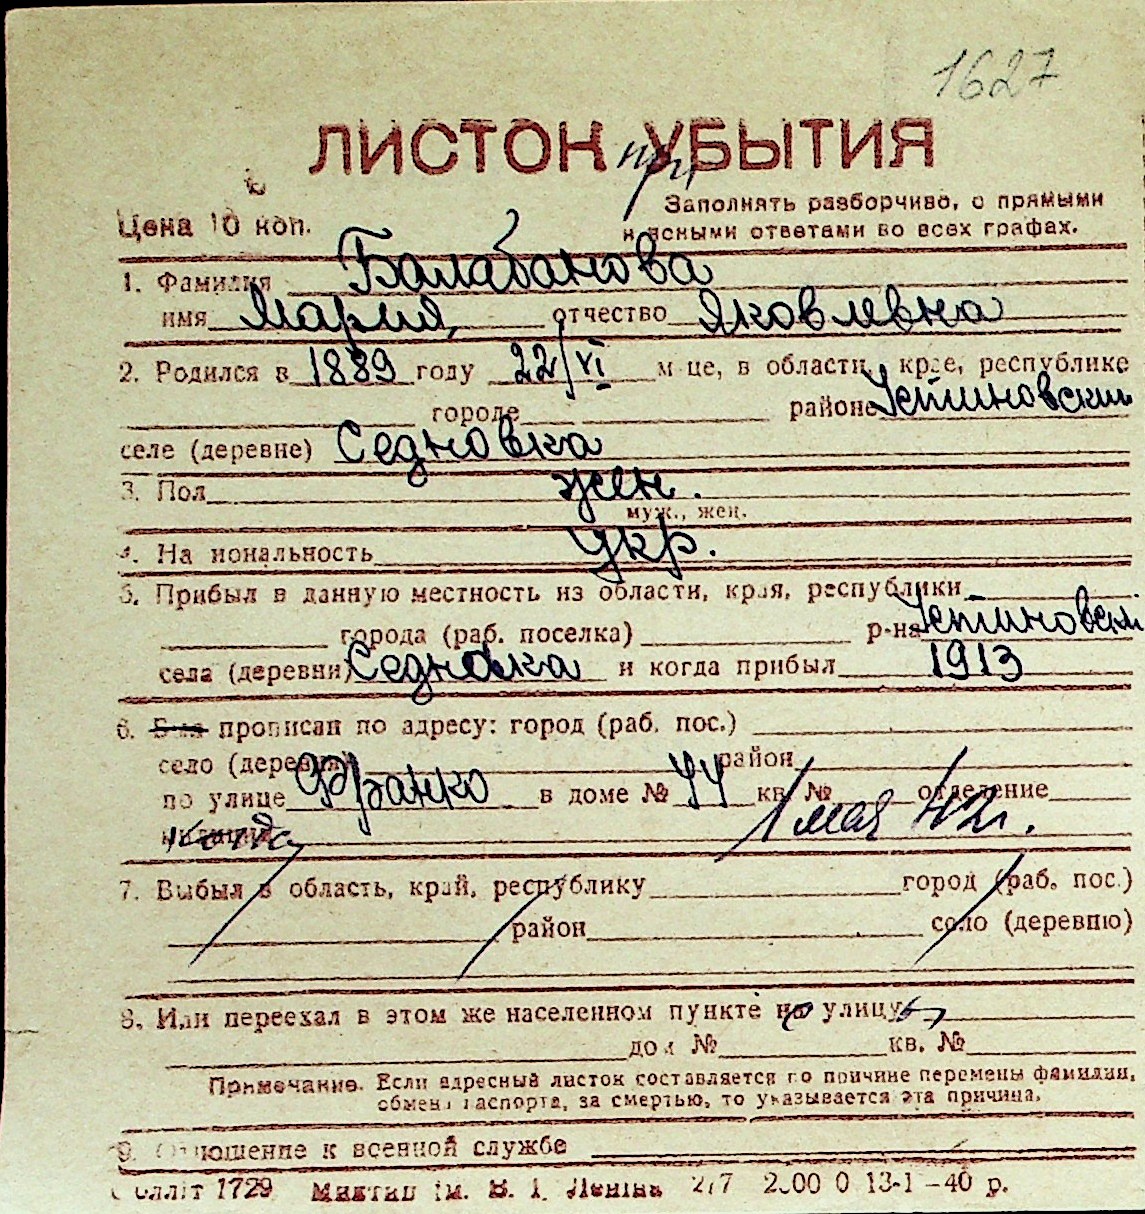 1627
ЛИСТОК при УБЫТИЯ
Цена 10 коп.
Заполнять разборчиво, с прямыми
и ясными ответами во всех графах.
1. Фамилия Балабанова
имя Мария, отчество Яковлевна
2. Родился в 1889 году 22/VI м-це, в области, крае, республике
городе районе Устиновский
селе (деревне) Седновка
3. Пол жен.
муж., жен.
4. Национальность укр.
5. Прибыл в данную местность из области, края, республики
города (раб. поселка) р-на Устиновский
села (деревни) Седновка и когда прибыл 1913
6. Был прописан по адресу: город (раб. пос.)
село (деревня) район
по улице Франко в доме № 44 кв. № отделение
милиции когда 1 мая 42 г.
7. Выбыл в область, край, республику город (раб. пос.)
район село (деревню)
8. Или переехал в этом же населенном пункте на улицу
дом № кв. №
Примечание. Если адресный листок составляется по причине перемены фамилии,
обмена паспорта, за смертью, то указывается эта причина.
9. Отношение к военной службе
1729 им. В. І. Леніна 2000 0 13-1-40 р.